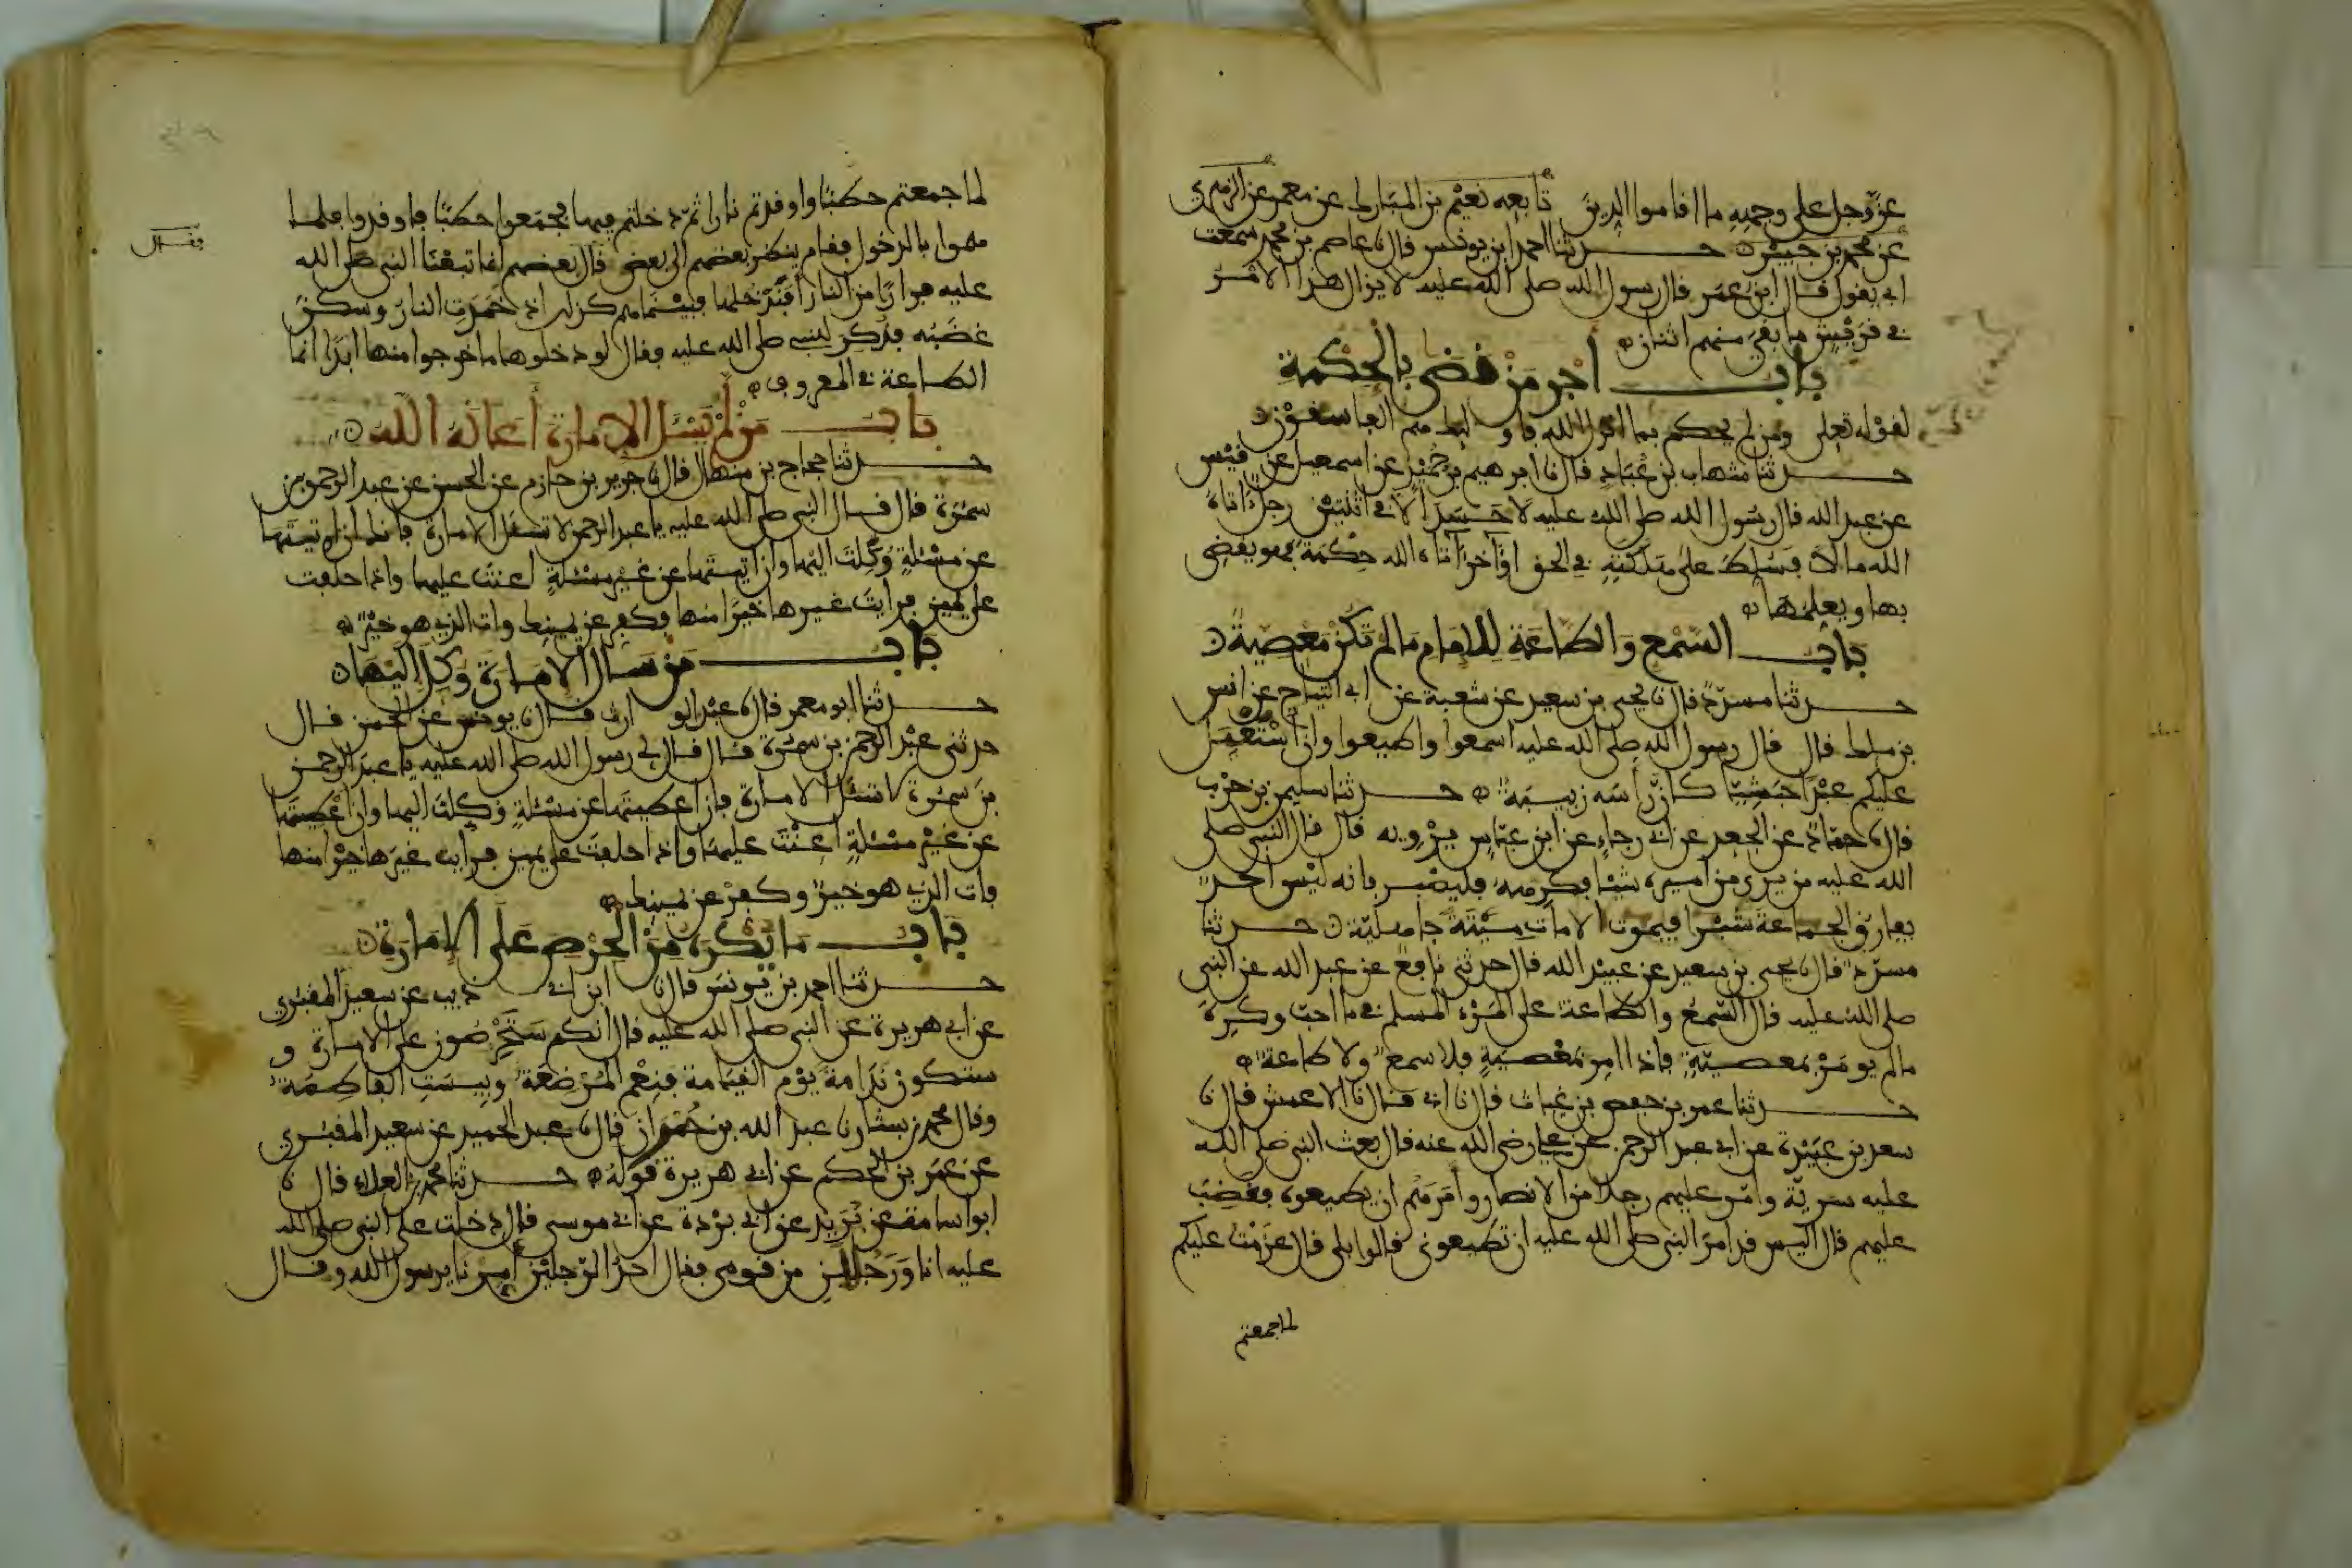 عز وجل على وجهه ما اقاموا الدين تابعه نعيم بن المبارك عن معمر عن الزهري
عن محمد بن جبير حدثنا احمد ابن يونس قال نا عاصم بن محمد سمعت
ابي يقول قال ابن عمر قال رسول الله صلى الله عليه لا يزال هذا الامر
في قريش ما بقي منهم اثنان
باب أجر من قضى بالحكمة
لقوله تعلى ومن لم يحكم بما انزل الله فاولئك هم الفاسقون
حدثنا شهاب بن عباد قال نا ابرهيم بن حميد عن اسمعيل عن قيس
عن عبد الله قال رسول الله صلى الله عليه لا حسد الا في اثنتين رجل اتاه
الله مالا فسلط على هلكته في الحق او اخر اتاه الله حكمة فهو يقضي
بها ويعلمها
باب السمع والطاعة للامام ما لم تكن معصية
حدثنا مسدد قال نا يحيى بن سعيد عن شعبة عن ابي التياح عن انس
بن ملك قال قال رسول الله صلى الله عليه اسمعوا واطيعوا وان استعمل
عليكم عبدا حبشيا كان راسه زبيبة حدثنا سليمن بن حرب
قال نا حماد عن الجعد عن ابي رجاء عن ابن عباس يرويه قال قال النبي صلى
الله عليه من يرى من اميره شيئا فكرهه فليصبر فانه ليس احد
يفارق الجماعة شبرا فيموت الا مات ميتة جاهلية حدثنا
مسدد قال نا يحيى بن سعيد عن عبيد الله قال حدثني نافع عن عبد الله عن النبي
صلى الله عليه قال السمع والطاعة على المرء المسلم في ما احب وكره
ما لم يومر بمعصية فاذا امر بمعصية فلا سمع ولا طاعة
حدثنا عمر بن حفص بن غياث قال نا ابي قال نا الاعمش قال نا
سعد بن عبيدة عن ابي عبد الرحمن عن علي رضي الله عنه قال بعث النبي صلى الله
عليه سرية وامر عليهم رجلا من الانصار وأمرهم ان يطيعوه فغضب
عليهم قال اليس قد امر النبي صلى الله عليه ان تطيعوني قالوا بلى قال عزمت عليكم
لما جمعتم
لما جمعتم حطبا واوقدتم نارا ثم دخلتم فيها فجمعوا حطبا فاوقدوا فلما
هموا بالدخول فقام ينظر بعضهم الى بعض قال بعضهم انما تبعنا النبي صلى الله
عليه فرارا من النار أفندخلها فبينما هم كذلك اذ خمدت النار وسكن
غضبه فذكر للنبي صلى الله عليه وقال لو دخلوها ما خرجوا منها ابدا انما
الطاعة في المعروف
باب من لم يسئل الامارة أعانه الله
حدثنا حجاج بن منهال قال نا جرير بن حازم عن الحسن عن عبد الرحمن بن
سمرة قال قال النبي صلى الله عليه يا عبد الرحمن لا تسئل الامارة فانك ان اوتيتها
عن مسئلة وكلت اليها وان اتيتها عن غير مسئلة اعنت عليها واذا حلفت
على يمين فرايت غيرها خيرا منها فكفر عن يمينك وات الذي هو خير
باب من سال الامارة وكل اليها
حدثنا ابو معمر قال نا عبد الوارث قال نا يونس عن الحسن قال
حدثني عبد الرحمن بن سمرة قال قال لي رسول الله صلى الله عليه يا عبد الرحمن
بن سمرة لا تسئل الامارة فان اعطيتها عن مسئلة وكلت اليها وان اعطيتها
عن غير مسئلة اعنت عليها واذا حلفت على يمين فرايت غيرها خيرا منها
فات الذي هو خير وكفر عن يمينك
باب ما يكره من الحرص على الامارة
حدثنا احمد بن يونس قال نا ابن ابي ذيب عن سعيد المقبري
عن ابي هريرة عن النبي صلى الله عليه قال انكم ستحرصون على الامارة و
ستكون ندامة يوم القيامة فنعم المرضعة وبيست الفاطمة
وقال محمد بن بشار نا عبد الله بن حمران قال نا عبد الحميد عن سعيد المقبري
عن عمر بن الحكم عن ابي هريرة قوله حدثنا محمد بن العلاء قال نا
ابو اسامة عن بريد عن ابي بردة عن ابي موسى قال دخلت على النبي صلى الله
عليه انا ورجلين من قومي فقال احد الرجلين أمرنا يرسول الله وقال